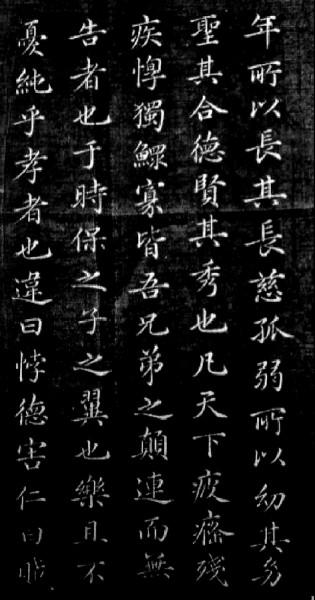 年所以長其長慈孤弱所以幼其幼
聖其合德賢其秀也凡天下疲癃殘
疾惸獨鰥寡皆吾兄弟之顛連而無
告者也于時保之子之翼也樂且不
憂純乎孝者也違曰悖德害仁曰賊